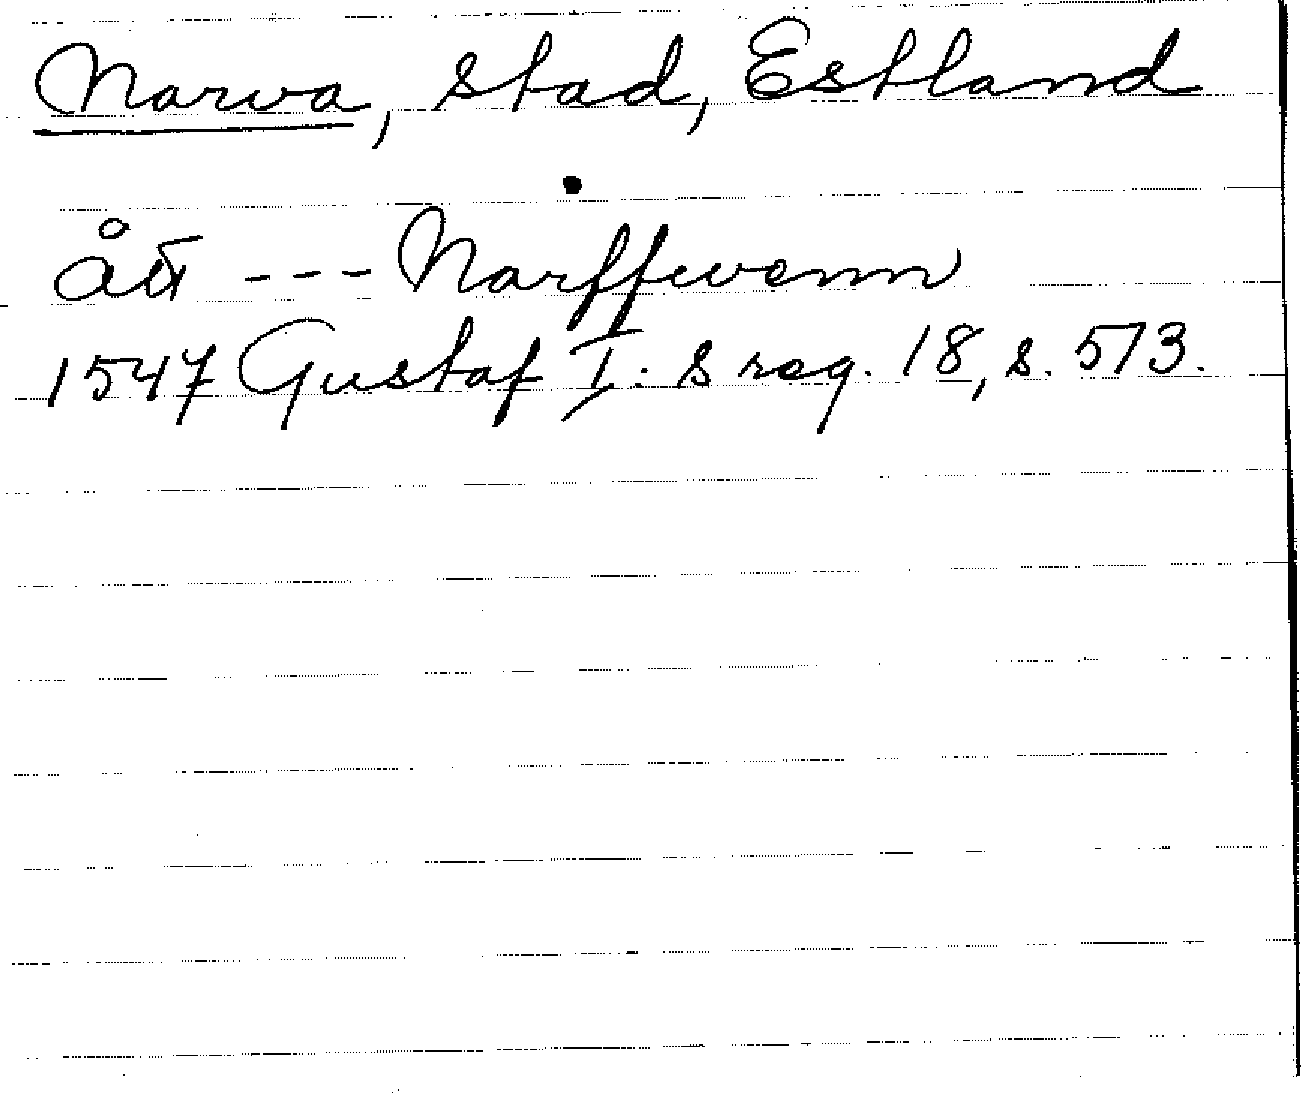 Narva, stad, Estland
ått --- Narffwenn
1547 Gustaf I: s reg. 18, s. 573.